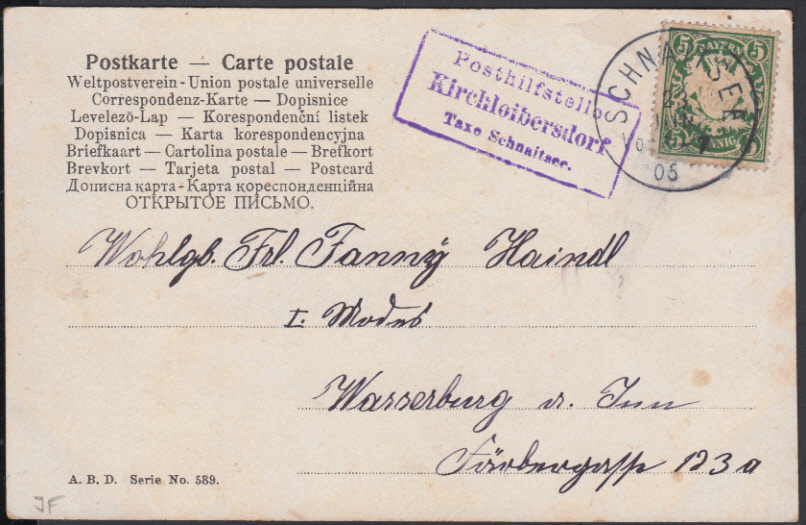 Postkarte — Carte postale
Weltpostverein - Union postale universelle
Correspondenz-Karte — Dopisnice
Levelező-Lap — Korespondenční listek
Dopisnica — Karta korespondencyjna
Briefkaart — Cartolina postale — Brefkort
Brevkort — Tarjeta postal — Postcard
Дописна карта - Карта кореспонденційна
ОТКРЫТОЕ ПИСЬМО.
Posthilfstelle
Kirchloibersdorf
Taxe Schnaitsee.
5 BAYERN 5
5
SCHNAITSEE
23
05
Wohlgb. Frl. Fanny Haindl
I. Modes
Wasserburg a. Inn
Färbergasse 123 a
A. B. D. Serie No. 589.
JF